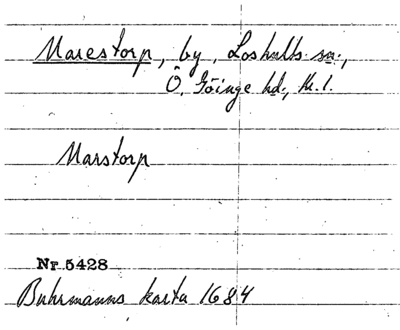 Marestorp, by, Loshults sn.,
Ö. Göinge hd., Kr. l.
Marstorp
Nr. 5428
Buhrmanns karta 1684